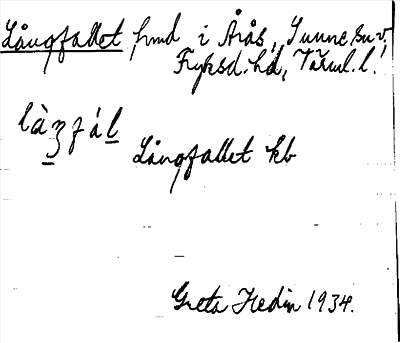 Långfallet hmd i Årås, Sunne sn, v,
Fryksd. hd, Värml. l.
làŋfál
Långfallet kb
Greta Hedin 1934.